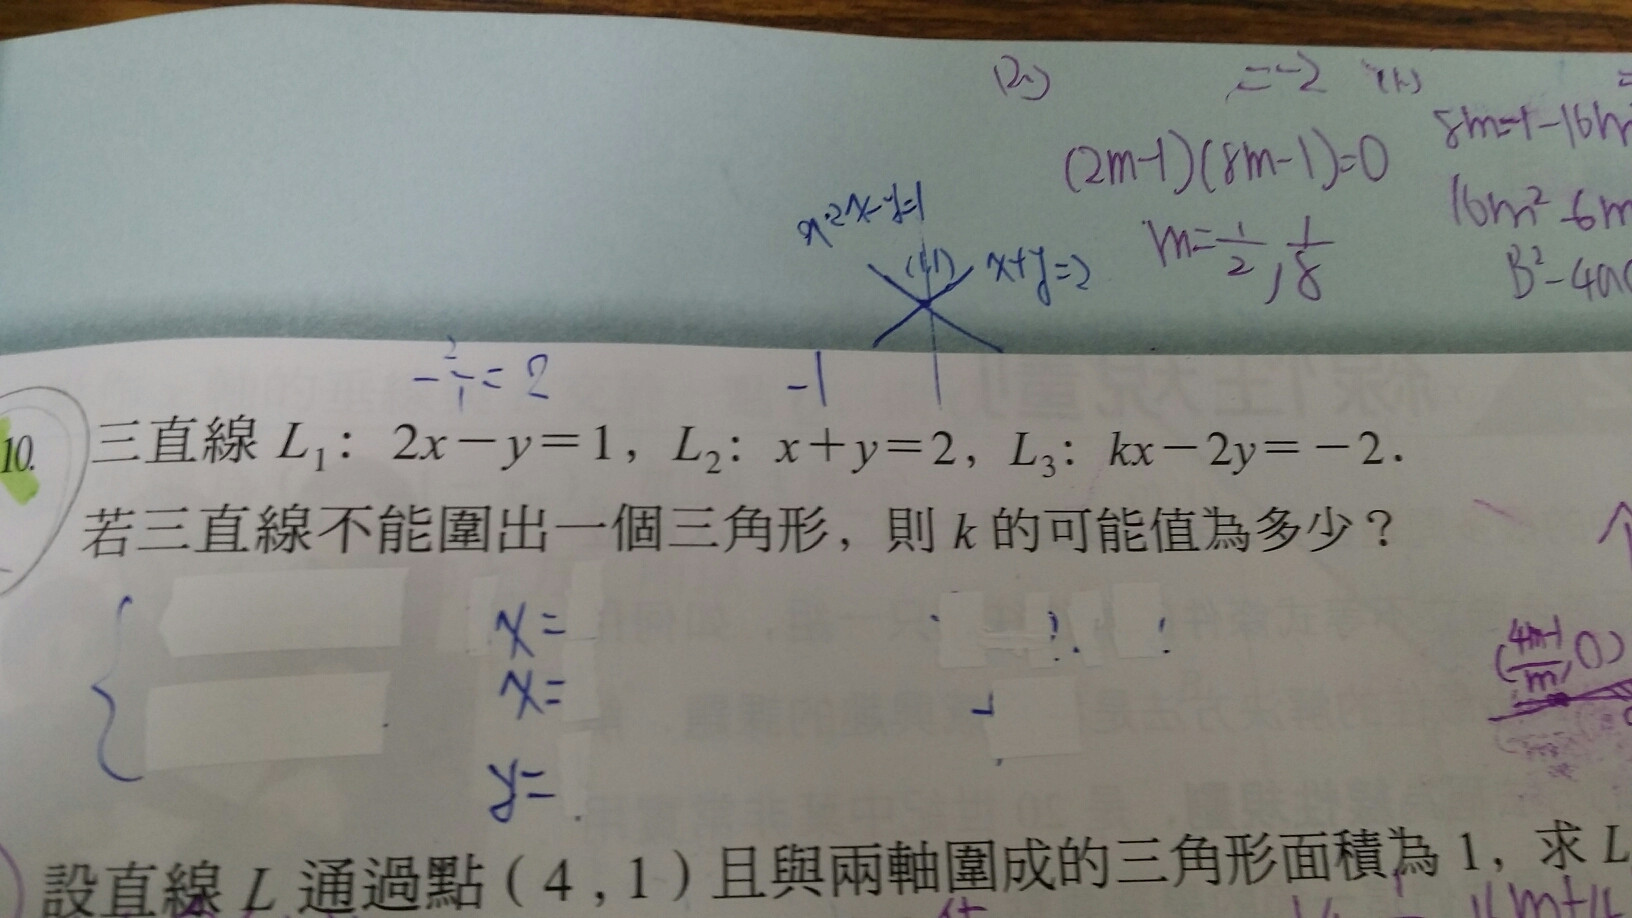 (2)
=-2
(k)
8m=1-16m
(2m-1)(8m-1)=0
16m²-6m
2x-y=1
m=1/2, 1/8
(1,1)
x+y=2
B²-4a
-2/-1=2
-1
10. 三直線 L₁: 2x-y=1, L₂: x+y=2, L₃: kx-2y=-2.
若三直線不能圍出一個三角形, 則 k 的可能值為多少?
x=
x=
(4m-1/m, 0)
y=
設直線 L 通過點 (4, 1) 且與兩軸圍成的三角形面積為 1, 求 L